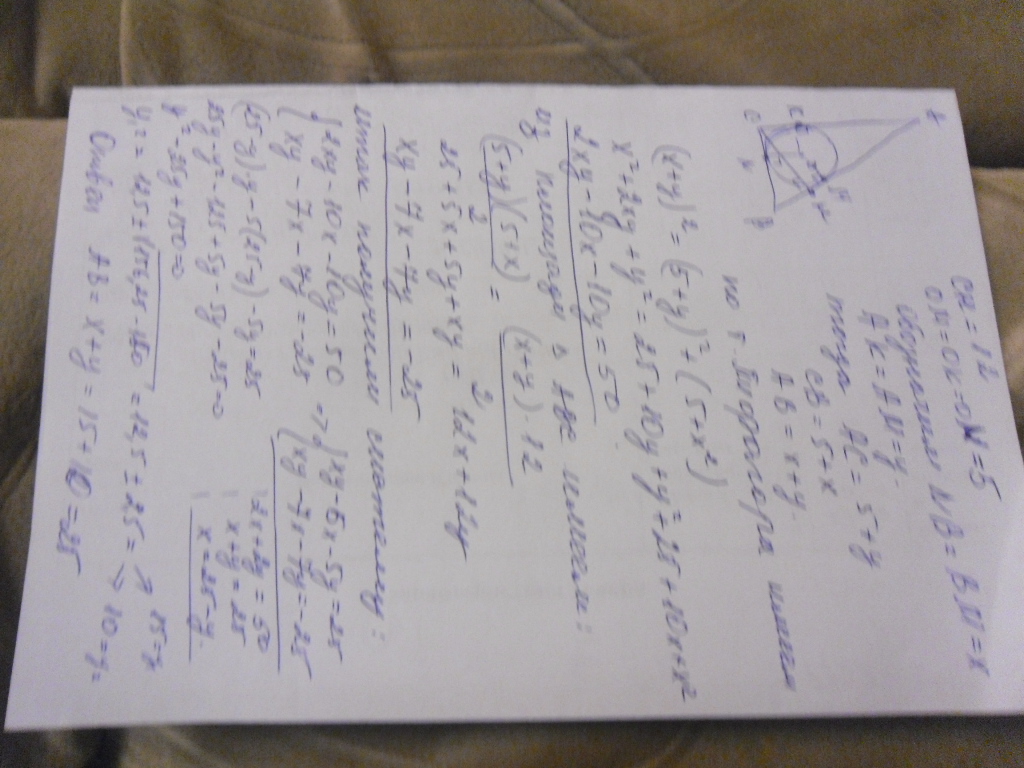 CH = 12
OK = OK = ON = 5
обозначим NB = BN = x
AK = AN = y.
тогда AC = 5 + y
CB = 5 + x
AB = x + y.
по т. Пифагора имеем
(x+y)² = (5+y)² + (5+x²)
x² + 2xy + y² = 25 + 10y + y² + 25 + 10x + x²
2xy - 10x - 10y = 50
из площади Δ ABC имеем:
(5+y)(5+x) / 2 = (x+y)·12 / 2
25 + 5x + 5y + xy = 12x + 12y
xy - 7x - 7y = -25
Итак получили систему:
{ 2xy - 10x - 10y = 50 => { xy - 5x - 5y = 25
{ xy - 7x - 7y = -25 { xy - 7x - 7y = -25
2x + 2y = 50
x + y = 25
x = 25 - y.
(25-y)·y - 5(25-y) - 5y = 25
25y - y² - 125 + 5y - 5y - 25 = 0
y² - 25y + 150 = 0
y = 12,5 ± = 12,5 ± 2,5 => 15 = y
10 = y
Ответ AB = x + y = 15 + 10 = 25